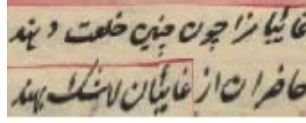 غائبانرا چون چنین خلعت دهند
حاضران از غائبان لاشک بهند